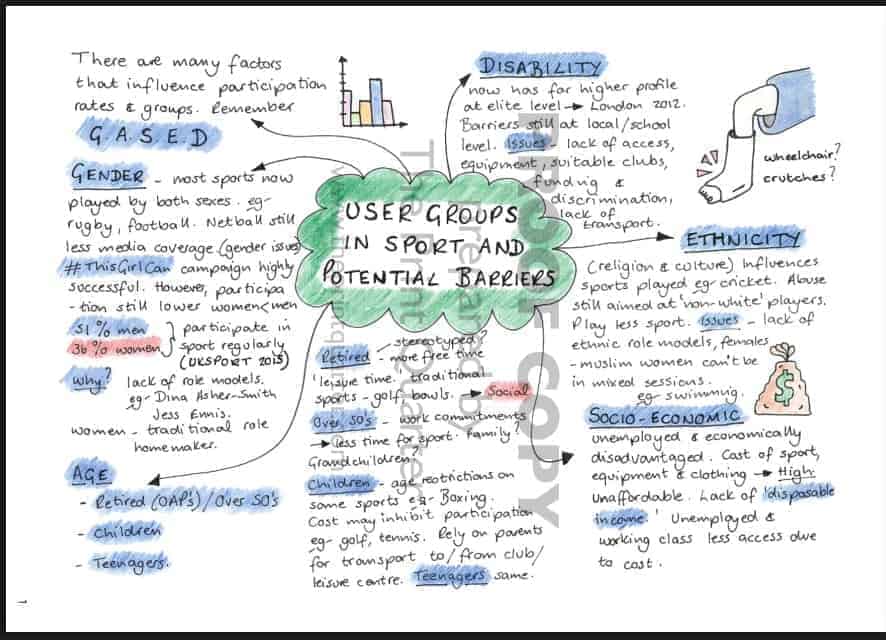 There are many factors
that influence participation
rates & groups. Remember
G.A.S.E.D
GENDER - most sports now
played by both sexes. eg-
rugby, football. Netball still
less media coverage (gender issues)
#ThisGirlCan campaign highly
successful. However, participa
-tion still lower women<men
51% men } participate in
36% women } sport regularly
(UKSPORT 2015)
Why? lack of role models.
eg- Dina Asher-Smith
Jess Ennis.
women - traditional role
homemaker.
AGE
- Retired (OAP's)/Over 50's
- Children
- Teenagers.
USER GROUPS
IN SPORT AND
POTENTIAL BARRIERS
Retired - stereotyped?
- more free time
'leisure time. traditional
sports - golf, bowls. → Social
Over 50's - work commitments
→ less time for sport. Family?
Grandchildren?
Children - age restrictions on
some sports eg- Boxing.
Cost may inhibit participation
eg- golf, tennis. Rely on parents
for transport to/from club/
leisure centre. Teenagers same.
DISABILITY
now has far higher profile
at elite level → London 2012.
Barriers still at local/school
level. Issues - lack of access,
equipment, suitable clubs,
funding &
discrimination,
lack of
transport.
wheelchair?
crutches?
ETHNICITY
(religion & culture) Influences
sports played eg- cricket. Abuse
still aimed at 'non-white' players.
Play less sport. Issues - lack of
ethnic role models, females
- muslim women can't be
in mixed sessions.
eg- swimming.
$
SOCIO-ECONOMIC
unemployed & economically
disadvantaged. Cost of sport,
equipment & clothing → High.
Unaffordable. Lack of 'disposable
income.' Unemployed &
working class less access due
to cost.
PROOF COPY
Prepared by
The Print Quarter